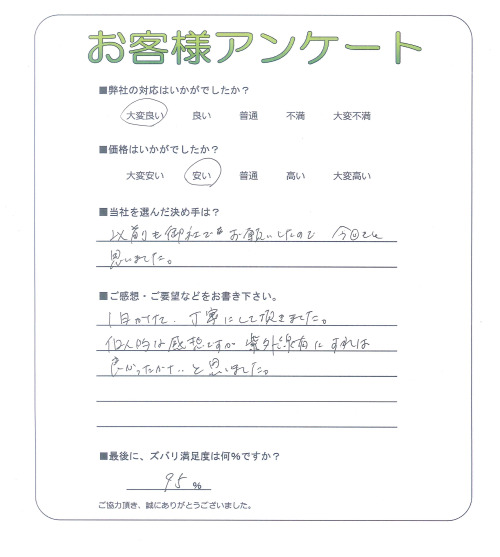 お客様アンケート
■弊社の対応はいかがでしたか？
大変良い 良い 普通 不満 大変不満
■価格はいかがでしたか？
大変安い 安い 普通 高い 大変高い
■当社を選んだ決め手は？
以前も御社でお願いしたので 今回もと
思いました。
■ご感想・ご要望などをお書き下さい。
1日かけて、丁寧にして頂きました。
個人的な感想ですが 紫外線有にすれば
良かったかナ‥と思いました。
■最後に、ズバリ満足度は何%ですか？
95 %
ご協力頂き、誠にありがとうございました。